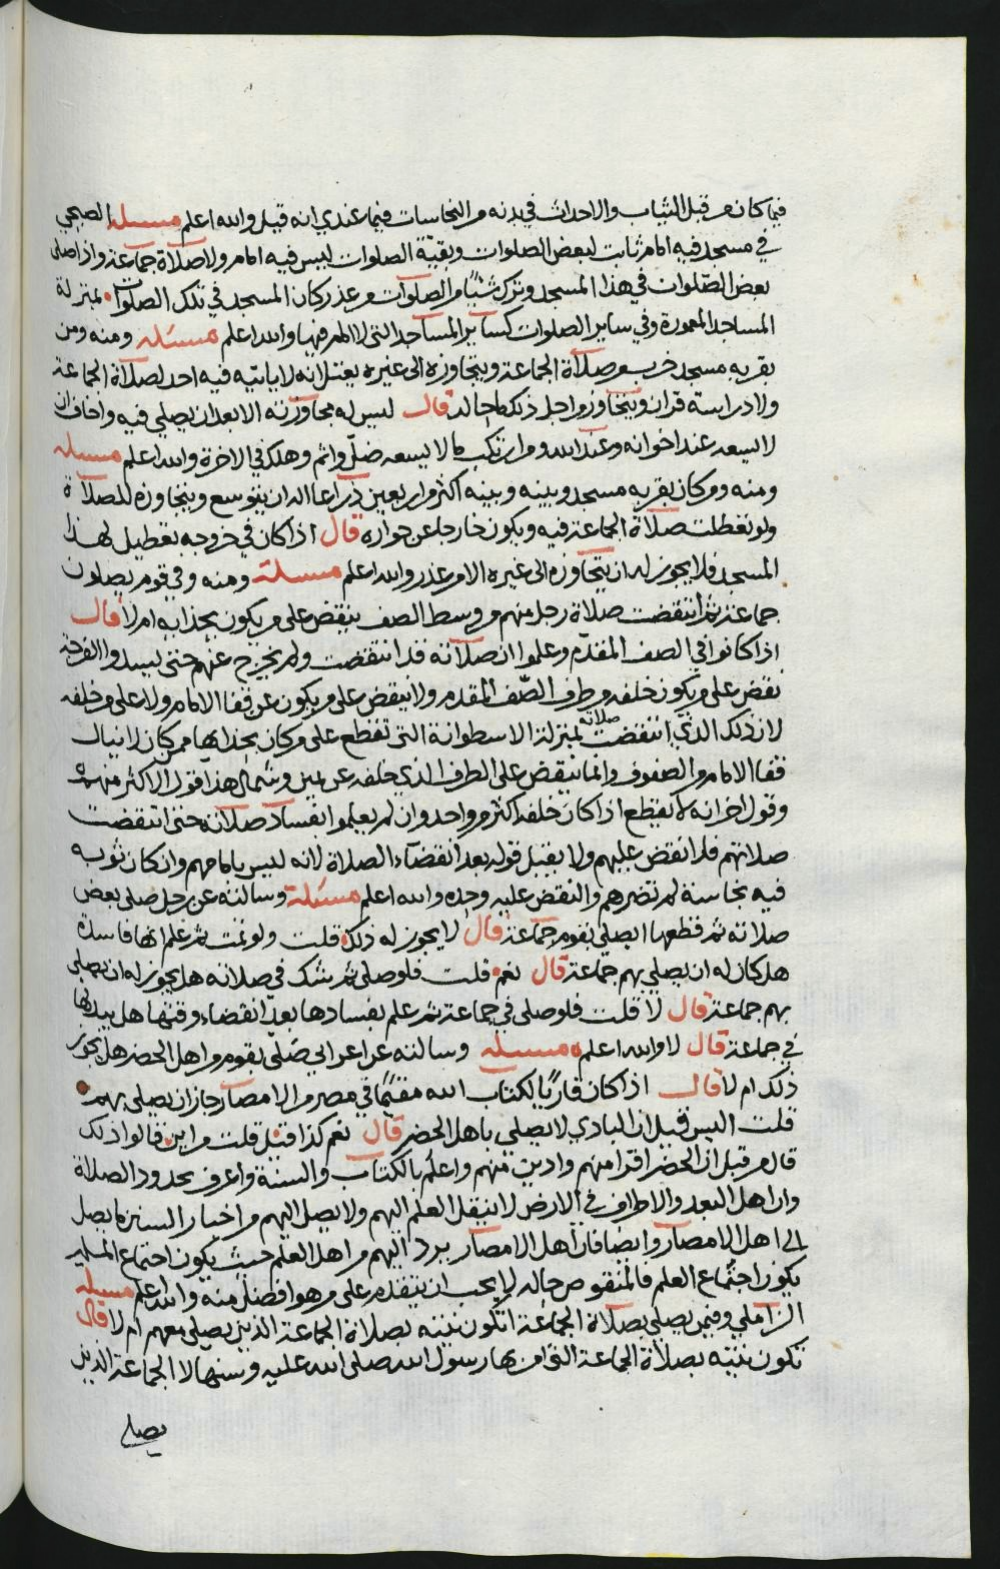 فيما كان من قبل الثياب والاحداث في بدنه من النجاسات فيما عندي انه قيل والله اعلم مسئلة الصبحي
في مسجد فيه امام ثابت لبعض الصلوات وبقية الصلوات ليس فيه امام ولا صلاة جماعة واذا صلى
بعض الصلوات في هذا المسجد وترك شيئا من الصلوات من عذر كان المسجد في تلك الصلوات بمنزلة
المساجد المعمورة وفي ساير الصلوات كساير المساجد التي لا امام فيها والله اعلم مسئلة ومنه ومن
بقربه مسجد خرب من صلاة الجماعة ويتجاوزه الى غيره يعتل انه لا ياتيه فيه احد لصلاة الجماعة
ولا دراسة قران ويتجاوز من اجل ذلك ما حاله قال ليس له مجاوزته الا بعد ان يصلي فيه واخاف ان
لا يسعه عند اخوانه وعند الله ومن ارتكب ما لا يسعه ضل واثم وهلك في الاخرة والله اعلم مسئلة
ومنه ومن كان بقربه مسجد وبينه وبينه اكثر من اربعين ذراعا اله ان يتوسع ويتجاوزه للصلاة
ولو تعطلت صلاة الجماعة فيه ويكون خارجا عن جواره قال اذا كان في خروجه تعطيل لهذا
المسجد فلا يجوز له ان يتجاوزه الى غيره الا من عذر والله اعلم مسئلة ومنه وفي قوم يصلون
جماعة ثم انتقضت صلاة رجل منهم من وسط الصف ينقض على من يكون بحذايه ام لا قال
اذا كانوا في الصف المقدم وعلموا ان صلاته قد انتقضت ولم يخرج عنهم حتى يسدوا الفرجة
نقض على من يكون خلفه من طرف الصف المقدم ولا ينقض على من يكون عن قفا الامام ولا على من خلفه
لان ذلك الذي انتقضت صلاته بمنزلة الاسطوانة التي تقطع على من كان بحذايها ممن كان لا ينال
قفا الامام والصفوف وانما ينقض على الطرف الذي خلفه عن يمين وشمال هذا قول الاكثر منهم
وقول اخر انه لا يقطع اذا كان خلفه اكثر من واحد وان لم يعلموا بفساد صلاته حتى انتقضت
صلاتهم فلا نقض عليهم ولا يقبل قوله بعد انقضاء الصلاة لانه ليس بامامهم وان كان ثوبه
فيه نجاسة لم تضرهم والنقض عليه وحده والله اعلم مسئلة وسالته عن رجل صلى بعض
صلاته ثم قطعها ايصلي بقوم جماعة قال لا يجوز له ذلك قلت ولو تمت ثم علم انها فاسدة
هل كان له ان يصلي بهم جماعة قال نعم قلت فلو صلى ثم شك في صلاته هل يجوز له ان يصلي
بهم جماعة قال لا قلت فلو صلى في جماعة ثم علم بفسادها بعد انقضاء وقتها هل يبدلها
في جماعة قال لا والله اعلم مسئلة وسالته عن اعرابي صلى بقوم من اهل الحضر هل يجوز
ذلك ام لا قال اذا كان قاريا لكتاب الله مقيما في مصر من الامصار جاز ان يصلي بهم
قلت اليس قيل ان البادي لا يصلي باهل الحضر قال نعم كذا قيل قلت من اين قالوا ذلك
قال من قبل ان الحضر اقرا منهم وادين منهم واعلم بالكتاب والسنة واعرف بحدود الصلاة
وان اهل البعد والاطراف في الارض لا ينتقل العلم اليهم ولا يصل اليهم من اخبار السنن ما يصل
الى اهل الامصار وايضا فان اهل الامصار يرد اليهم من اهل العلم حيث يكون اجتماع المسلمين
يكون اجتماع العلم فالمنقوص حاله لا يجب ان يتقدم على من هو افضل منه والله اعلم مسئلة
الزاملي وفيمن يصلي بصلاة الجماعة اتكون نيته بصلاة الجماعة الذين يصلي معهم ام لا قال
تكون نيته بصلاة الجماعة التي امر بها رسول الله صلى الله عليه وسنها لا الجماعة الذين
يصلي